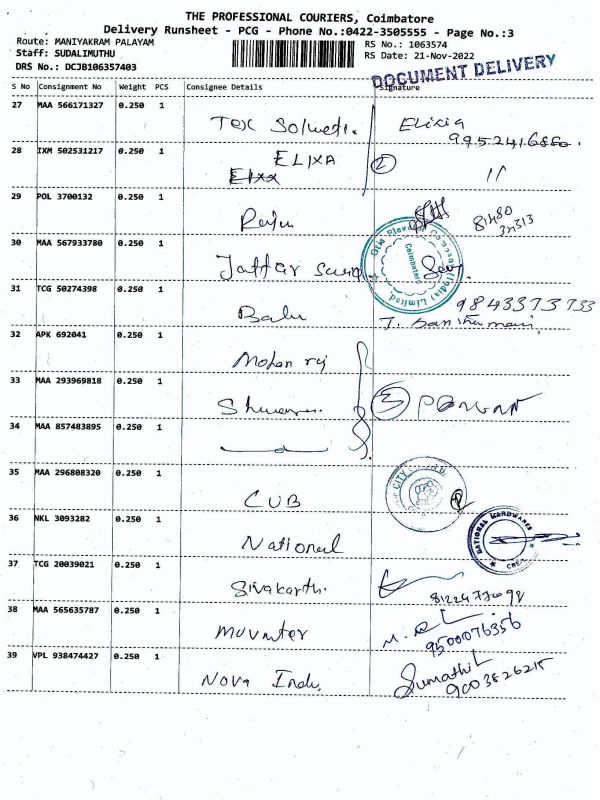 THE PROFESSIONAL COURIERS, Coimbatore
Delivery Runsheet - PCG - Phone No.:0422-3505555 - Page No.:3
Route: MANIYAKRAM PALAYAM
RS No.: 1063574
Staff: SUDALIMUTHU
RS Date: 21-Nov-2022
DRS No.: DCJB106357403
DOCUMENT DELIVERY
S No Consignment No Weight PCS Consignee Details Signature
27 MAA 566171327 0.250 1 Tex Elixia
28 IXM 502531217 0.250 1 ELIXA 2 11
29 POL 3700132 0.250 1 Raju 81480
30 MAA 567933780 0.250 1 Jaffar
Coimbatore
31 TCG 50274398 0.250 1 Balu 9843373733
32 APK 692041 0.250 1 Mohan raj
33 MAA 293969818 0.250 1 3
34 MAA 857483895 0.250 1
35 MAA 296808320 0.250 1 CUB
CITY
36 NKL 3093282 0.250 1 National
NATIONAL HARDWARES
37 TCG 20039021 0.250 1 Sivakarthi.
38 MAA 565635787 0.250 1 9500076356
39 VPL 938474427 0.250 1 Nova Indu, Sumathi
9003826215